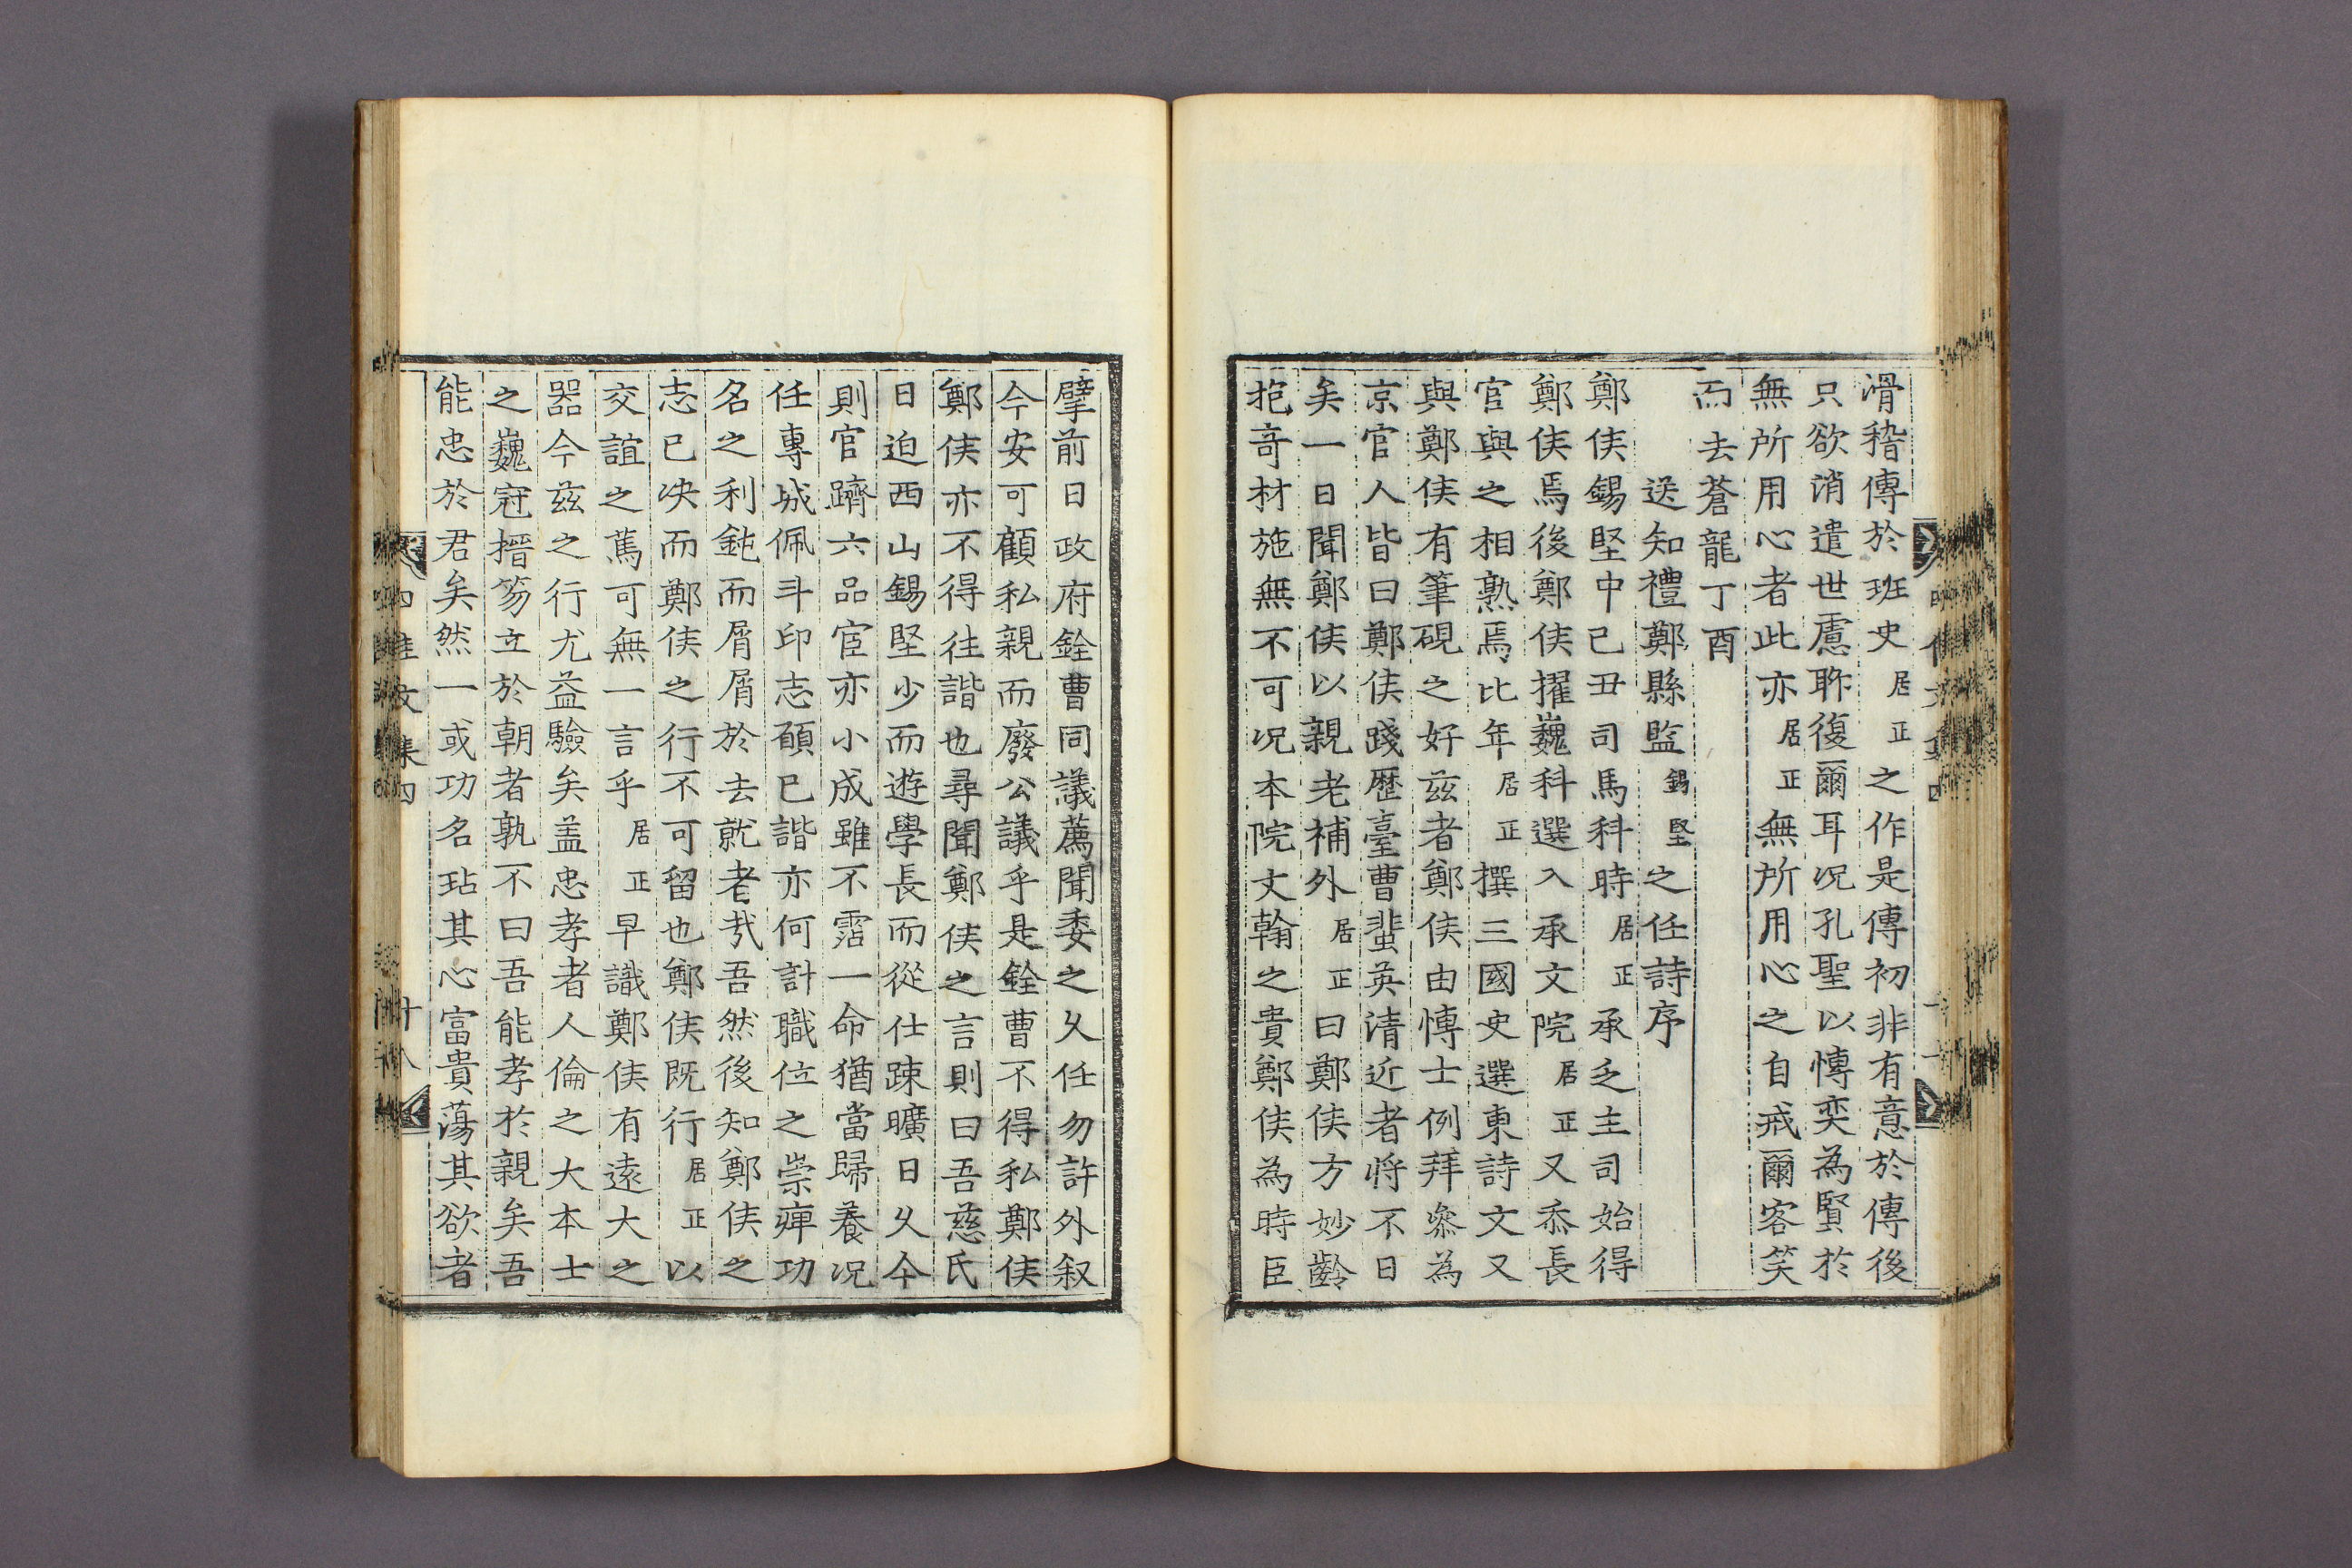 滑稽傳於班史居正之作是傳初非有意於傳後
只欲消遣世慮聊復爾耳况孔聖以愽奕為賢於
無所用心者此亦居正無所用心之自戒爾客笑
而去蒼龍丁酉
送知禮鄭縣監錫堅之任詩序
鄭侯錫堅中己丑司馬科時居正承乏主司始得
鄭侯焉後鄭侯擢巍科選入承文院居正又忝長
官與之相熟焉比年居正撰三國史選東詩文又
與鄭侯有筆硯之好兹者鄭侯由愽士例拜叅為
京官人皆曰鄭侯踐歷臺曹蜚英清近者將不日
矣一日聞鄭侯以親老補外居正曰鄭侯方妙齡
抱奇材施無不可况本院文翰之貴鄭侯為時臣
擘前日政府銓曹同議薦聞委之久任勿許外叙
今安可顧私親而廢公議乎是銓曹不得私鄭侯
鄭侯亦不得往諧也尋聞鄭侯之言則曰吾慈氏
日迫西山錫堅少而遊學長而從仕踈曠日久今
則官躋六品宦亦小成雖不霑一命猶當歸養况
任專城佩斗印志願已諧亦何計職位之崇痺功
名之利鈍而屑屑於去就者㢤吾然後知鄭侯之
志已决而鄭侯之行不可留也鄭侯既行居正以
交誼之蔿可無一言乎居正早識鄭侯有遠大之
器今兹之行尤益驗矣盖忠孝者人倫之大本士
之巍冠搢笏立於朝者孰不曰吾能孝於親矣吾
能忠於君矣然一或功名玷其心富貴蕩其欲者
四佳文集四
十八